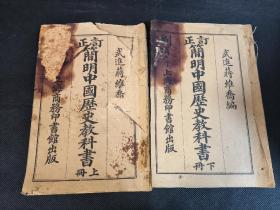 訂正簡明中國歷史教科書
上冊
武進蔣維喬
商務印書館出版
訂正簡明中國歷史教科書
下冊
武進蔣維喬編
上海商務印書館出版